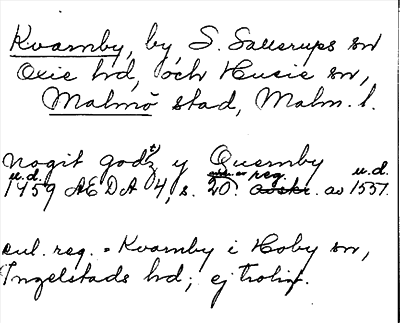 Kvarnby, by, S. Sallerups sn
Oxie hd, och Husie sn,
Malmö stad, Malm. l.
nogit godz y Quernby
u.d. reg. u.d.
1459 ÆDA 4, s. 20. avskr. av 1551.
enl. reg. = Kvarnby i Hoby sn,
Ingelstads hd; ej troligt.